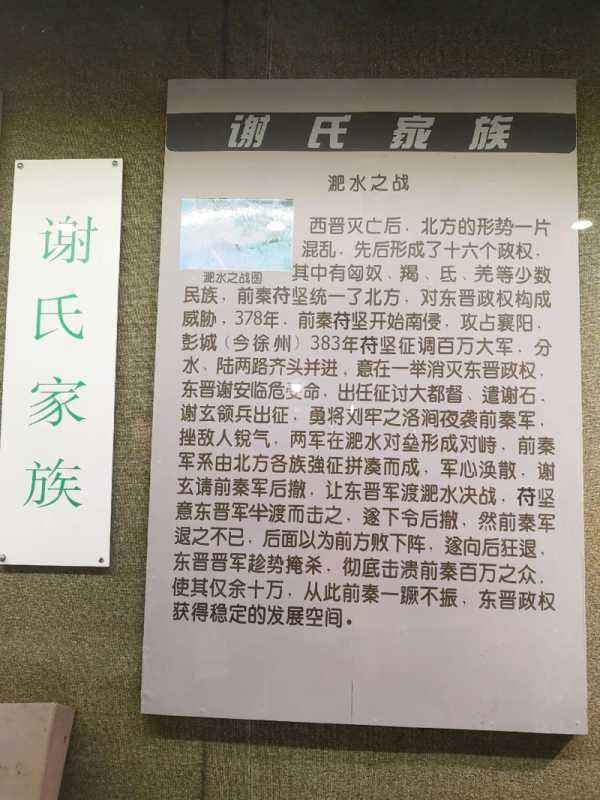 谢氏家族
谢氏家族
淝水之战
西晋灭亡后，北方的形势一片
混乱，先后形成了十六个政权，
淝水之战图
其中有匈奴、羯、氐、羌等少数
民族，前秦苻坚统一了北方，对东晋政权构成
威胁，378年，前秦苻坚开始南侵，攻占襄阳，
彭城（今徐州）383年苻坚征调百万大军，分
水、陆两路齐头并进，意在一举消灭东晋政权，
东晋谢安临危受命，出任征讨大都督、遣谢石，
谢玄领兵出征，勇将刘牢之洛涧夜袭前秦军，
挫敌人锐气，两军在淝水对垒形成对峙，前秦
军系由北方各族強征拼凑而成，军心涣散，谢
玄请前秦军后撤，让东晋军渡淝水决战，苻坚
意东晋军半渡而击之，遂下令后撤，然前秦军
退之不已，后面以为前方败下阵，遂向后狂退，
东晋晋军趁势掩杀，彻底击溃前秦百万之众，
使其仅余十万，从此前秦一蹶不振，东晋政权
获得稳定的发展空间。